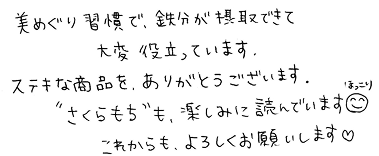 美めぐり習慣で、鉄分が摂取できて
大変役立っています。
ステキな商品を、ありがとうございます。
ほっこり
"さくらもち"も、楽しみに読んでいます
これからも、よろしくお願いします♡